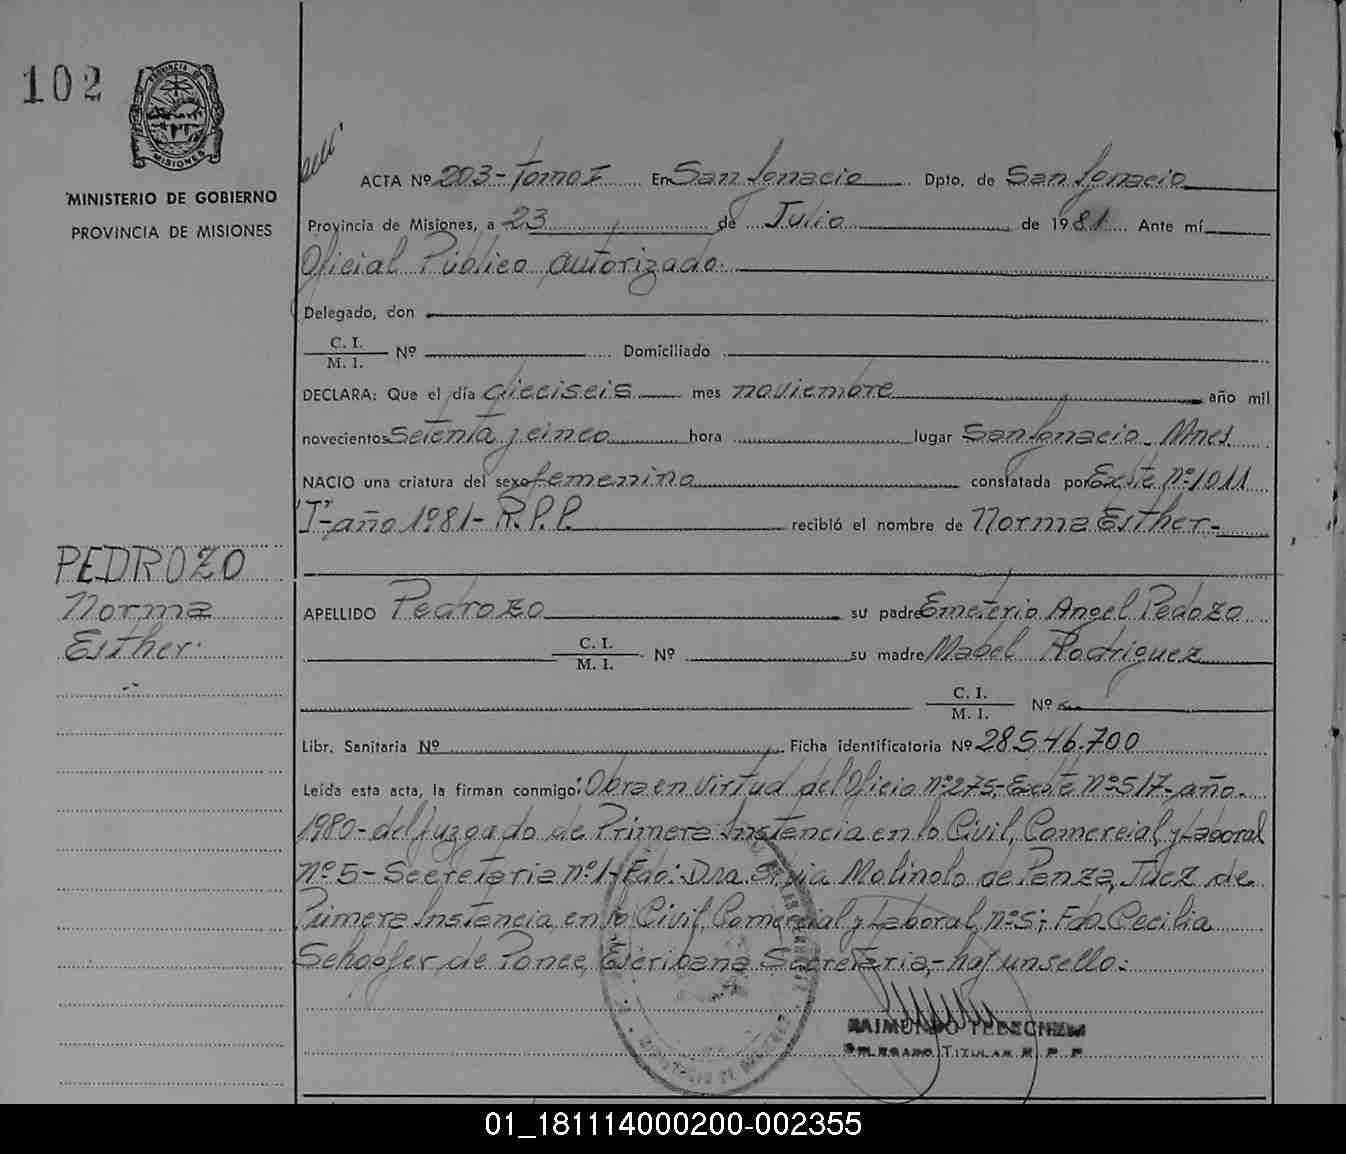 102
PROVINCIA DE
MISIONES
MINISTERIO DE GOBIERNO
PROVINCIA DE MISIONES
ACTA Nº 203-Tomo I En San Ignacio Dpto. de San Ignacio
Provincia de Misiones, a 23 de Julio de 1981. Ante mí
Oficial Público Autorizado.
Delegado, don
C. I.
M. I. Nº Domiciliado
DECLARA: Que el día dieciseis mes noviembre año mil
novecientos setenta y cinco hora lugar San Ignacio. Mnes
NACIO una criatura del sexo femenino constatada por Exste Nº 1011
"I"- año 1981- R.P.P. recibió el nombre de Norma Esther.-
PEDROZO
Norma
Esther.
APELLIDO Pedrozo su padre Emeterio Angel Pedozo
C. I.
M. I. Nº su madre Mabel Rodriguez
C. I.
M. I. Nº
Libr. Sanitaria Nº Ficha identificatoria Nº 28546.700
Leída esta acta, la firman conmigo: Obra en virtud del Oficio nº 275- Exste Nº 517- año.
1980- del juzgado de Primera Instancia en lo Civil, Comercial, y Laboral
nº 5- Secretaria nº 1- Fdo: Dra. Molinolo de Panza, Juez de
Primera Instancia en lo Civil, Comercial y Laboral nº 5; Fdo. Cecilia
de Ponce, Escribana Secretaria,- hay un sello.
RAIMUNDO
DELEGADO TITULAR R. P. P.
01_181114000200-002355